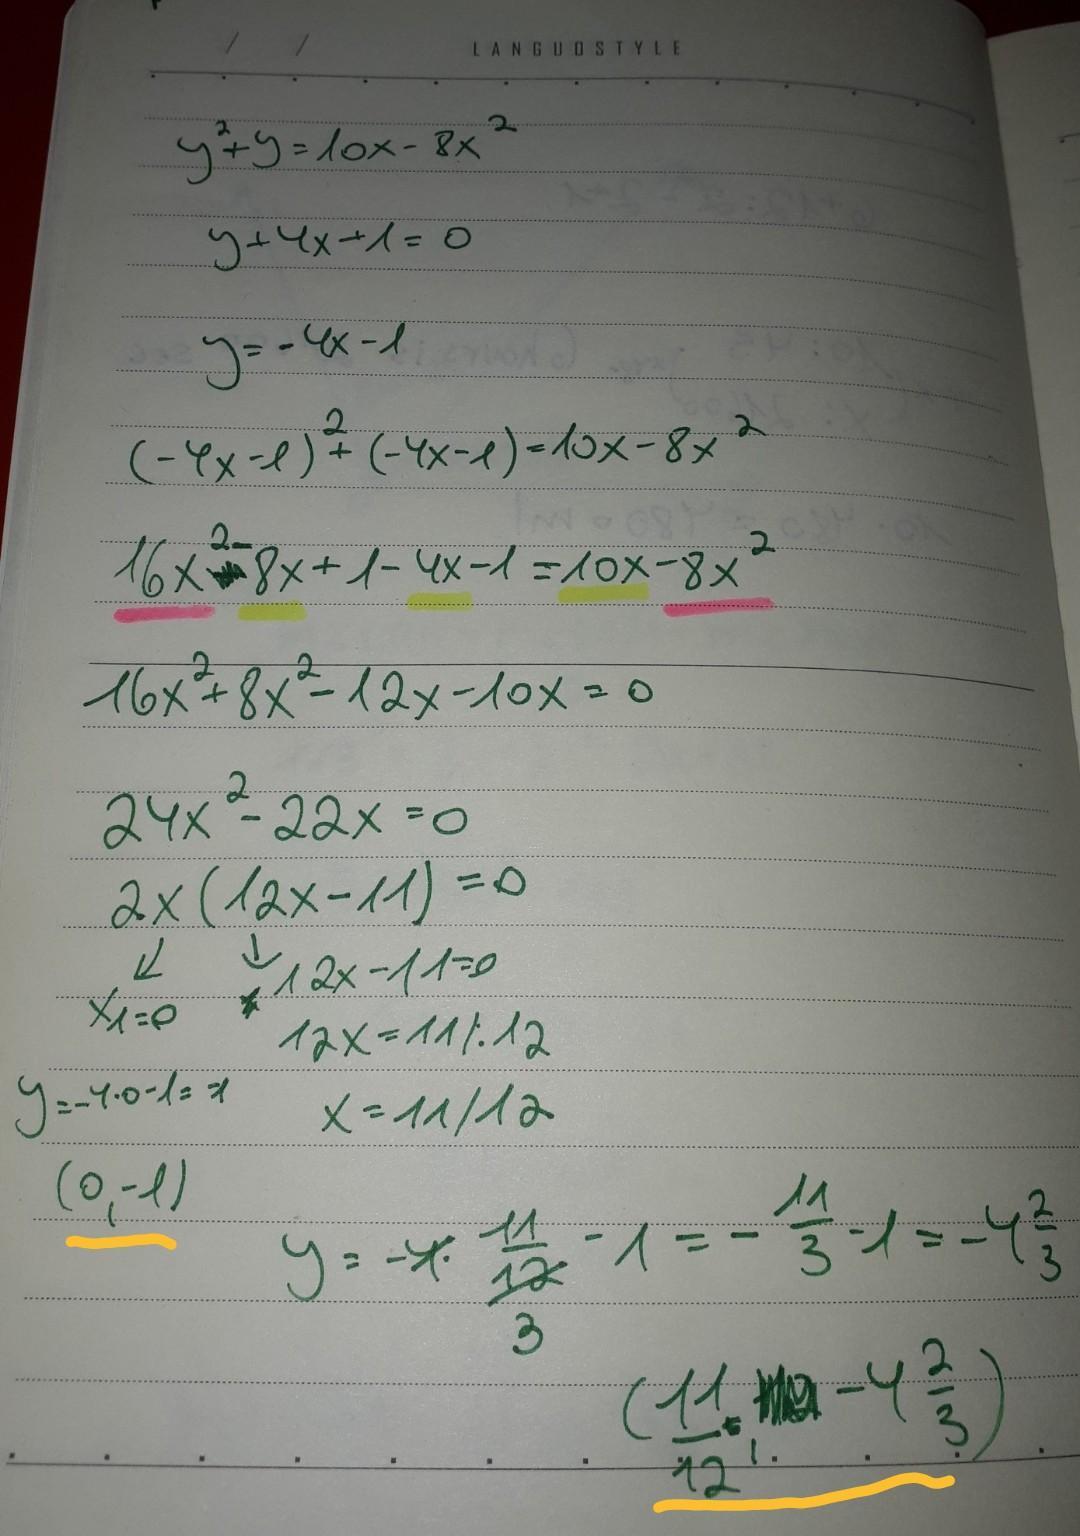 LANGUOSTYLE
y²+y=10x-8x²
y+4x+1=0
y=-4x-1
(-4x-1)²+(-4x-1)=10x-8x²
16x²-8x+1-4x-1=10x-8x²
16x²+8x²-12x-10x=0
24x²-22x=0
2x(12x-11)=0
↙ ↓ 12x-11=0
x₁=0 12x=11/:12
y=-4·0-1=-1 x=11/12
(0,-1)
y=-4·11/12-1=-11/3-1=-4 2/3
3
(11/12, -4 2/3)